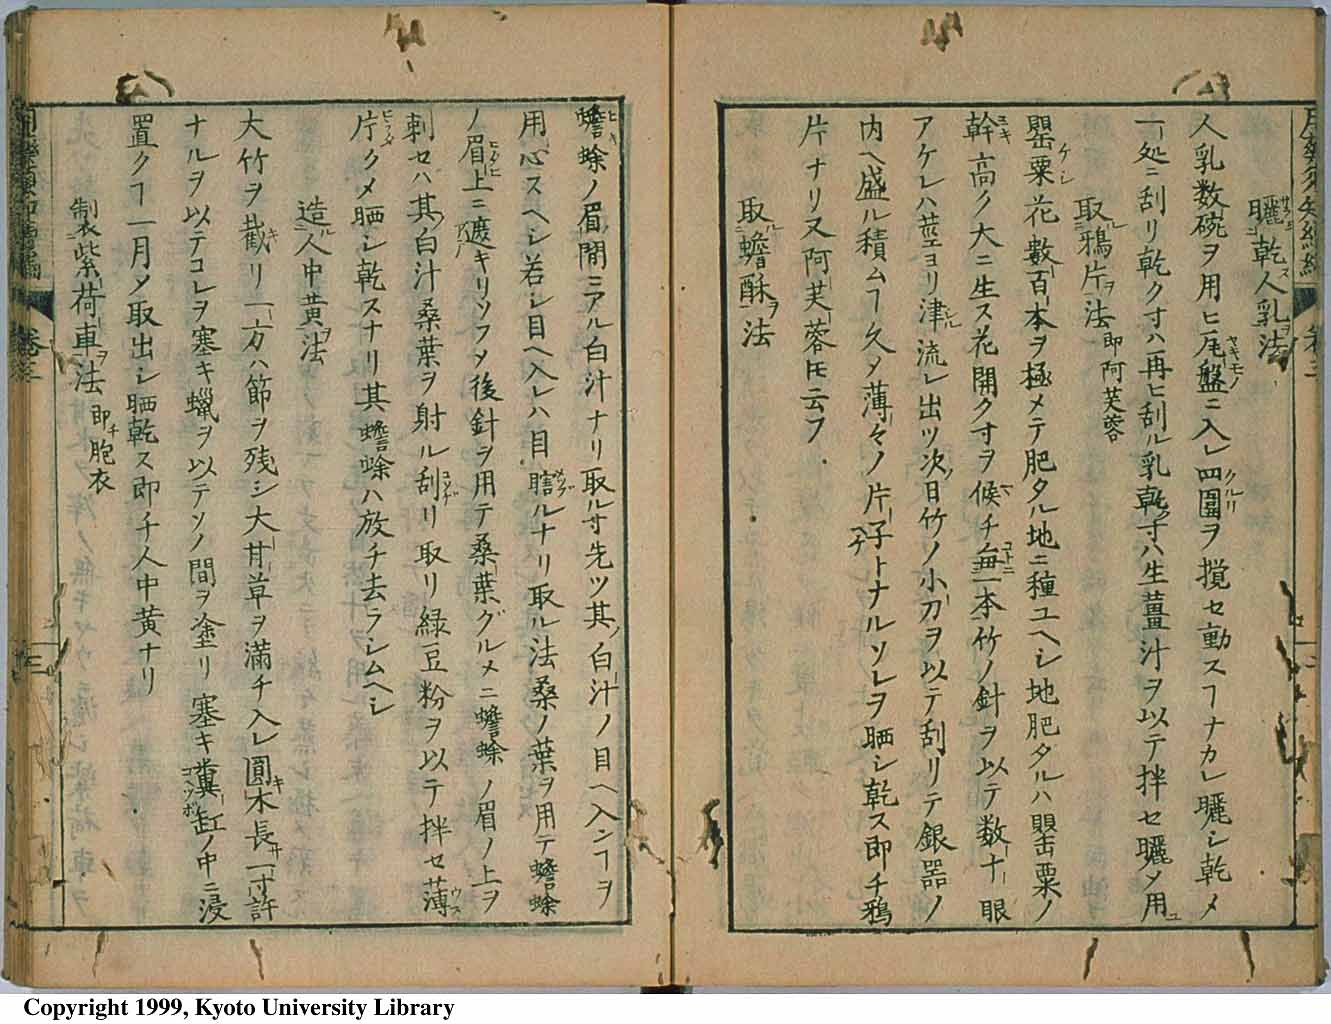 曬乾人乳ヲ法
人乳数碗ヲ用ヒ瓦盤ニ入レ四圍ヲ撹セ動スヿナカレ曬シ乾メ
一処ニ刮リ乾クヰハ再ヒ刮ル乳乾クヰハ生薑汁ヲ以テ拌セ曬メ用ユ
取ル鴉片ヲ法 即阿芙蓉
罌粟花數百本ヲ極メテ肥タル地ニ種ユヘシ地肥タルハ罌粟ノ
幹高ク大ニ生ス花開クヰヲ候チ毎一本竹ノ針ヲ以テ数十眼
アケレハ莖ヨリ津流レ出ツ次ノ日竹ノ小刀ヲ以テ刮リテ銀器ノ
内ヘ盛ル積ムヿ久メ薄々ノ片子トナルソレヲ晒シ乾ス即チ鴉
片ナリ又阿芙蓉𪜈云フ
取ル蟾酥ヲ法
蟾蜍ノ眉間ニアル白汁ナリ取ルヰ先ツ其ノ白汁ノ目ヘ入ンヿヲ
用心スヘシ若シ目ヘ入レハ目瞎ルナリ取ル法桑ノ葉ヲ用テ蟾蜍
ノ眉上ニ遮キリソフメ後針ヲ用テ桑葉グルメニ蟾蜍ノ眉ノ上ヲ
刺セハ其ノ白汁桑葉ヲ射ル刮リ取リ緑豆粉ヲ以テ拌セ薄
片クメ晒シ乾スナリ其蟾蜍ハ放チ去ラシムヘシ
造ル人中黄ヲ法
大竹ヲ截リ一方ハ節ヲ残シ大甘草ヲ満チ入レ圓木長サ一寸許
ナルヲ以テコレヲ塞キ蠟ヲ以テソノ間ヲ塗リ塞キ糞缸ノ中ニ浸
置クヿ一月メ取出シ晒乾ス即チ人中黄ナリ
制衣紫荷車ヲ法 即チ胞衣
卷三
三
Copyright 1999, Kyoto University Library